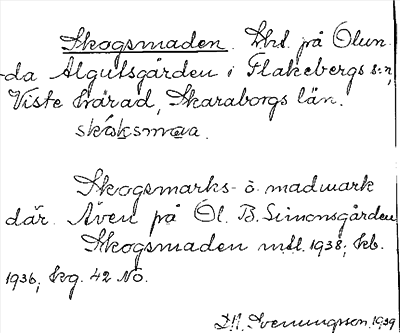 Skogsmaden. Khd. på Ölun-
da Algutsgården i Flakebergs s:n,
Viste härad, Skaraborgs län.
skóksmaa.
Skogsmarks- o. madmark
där. Även på Öl. B. Simonsgården
Skogsmaden mtl. 1938; kb.
1936; kg. 42 NO.
Svenungsson 1939